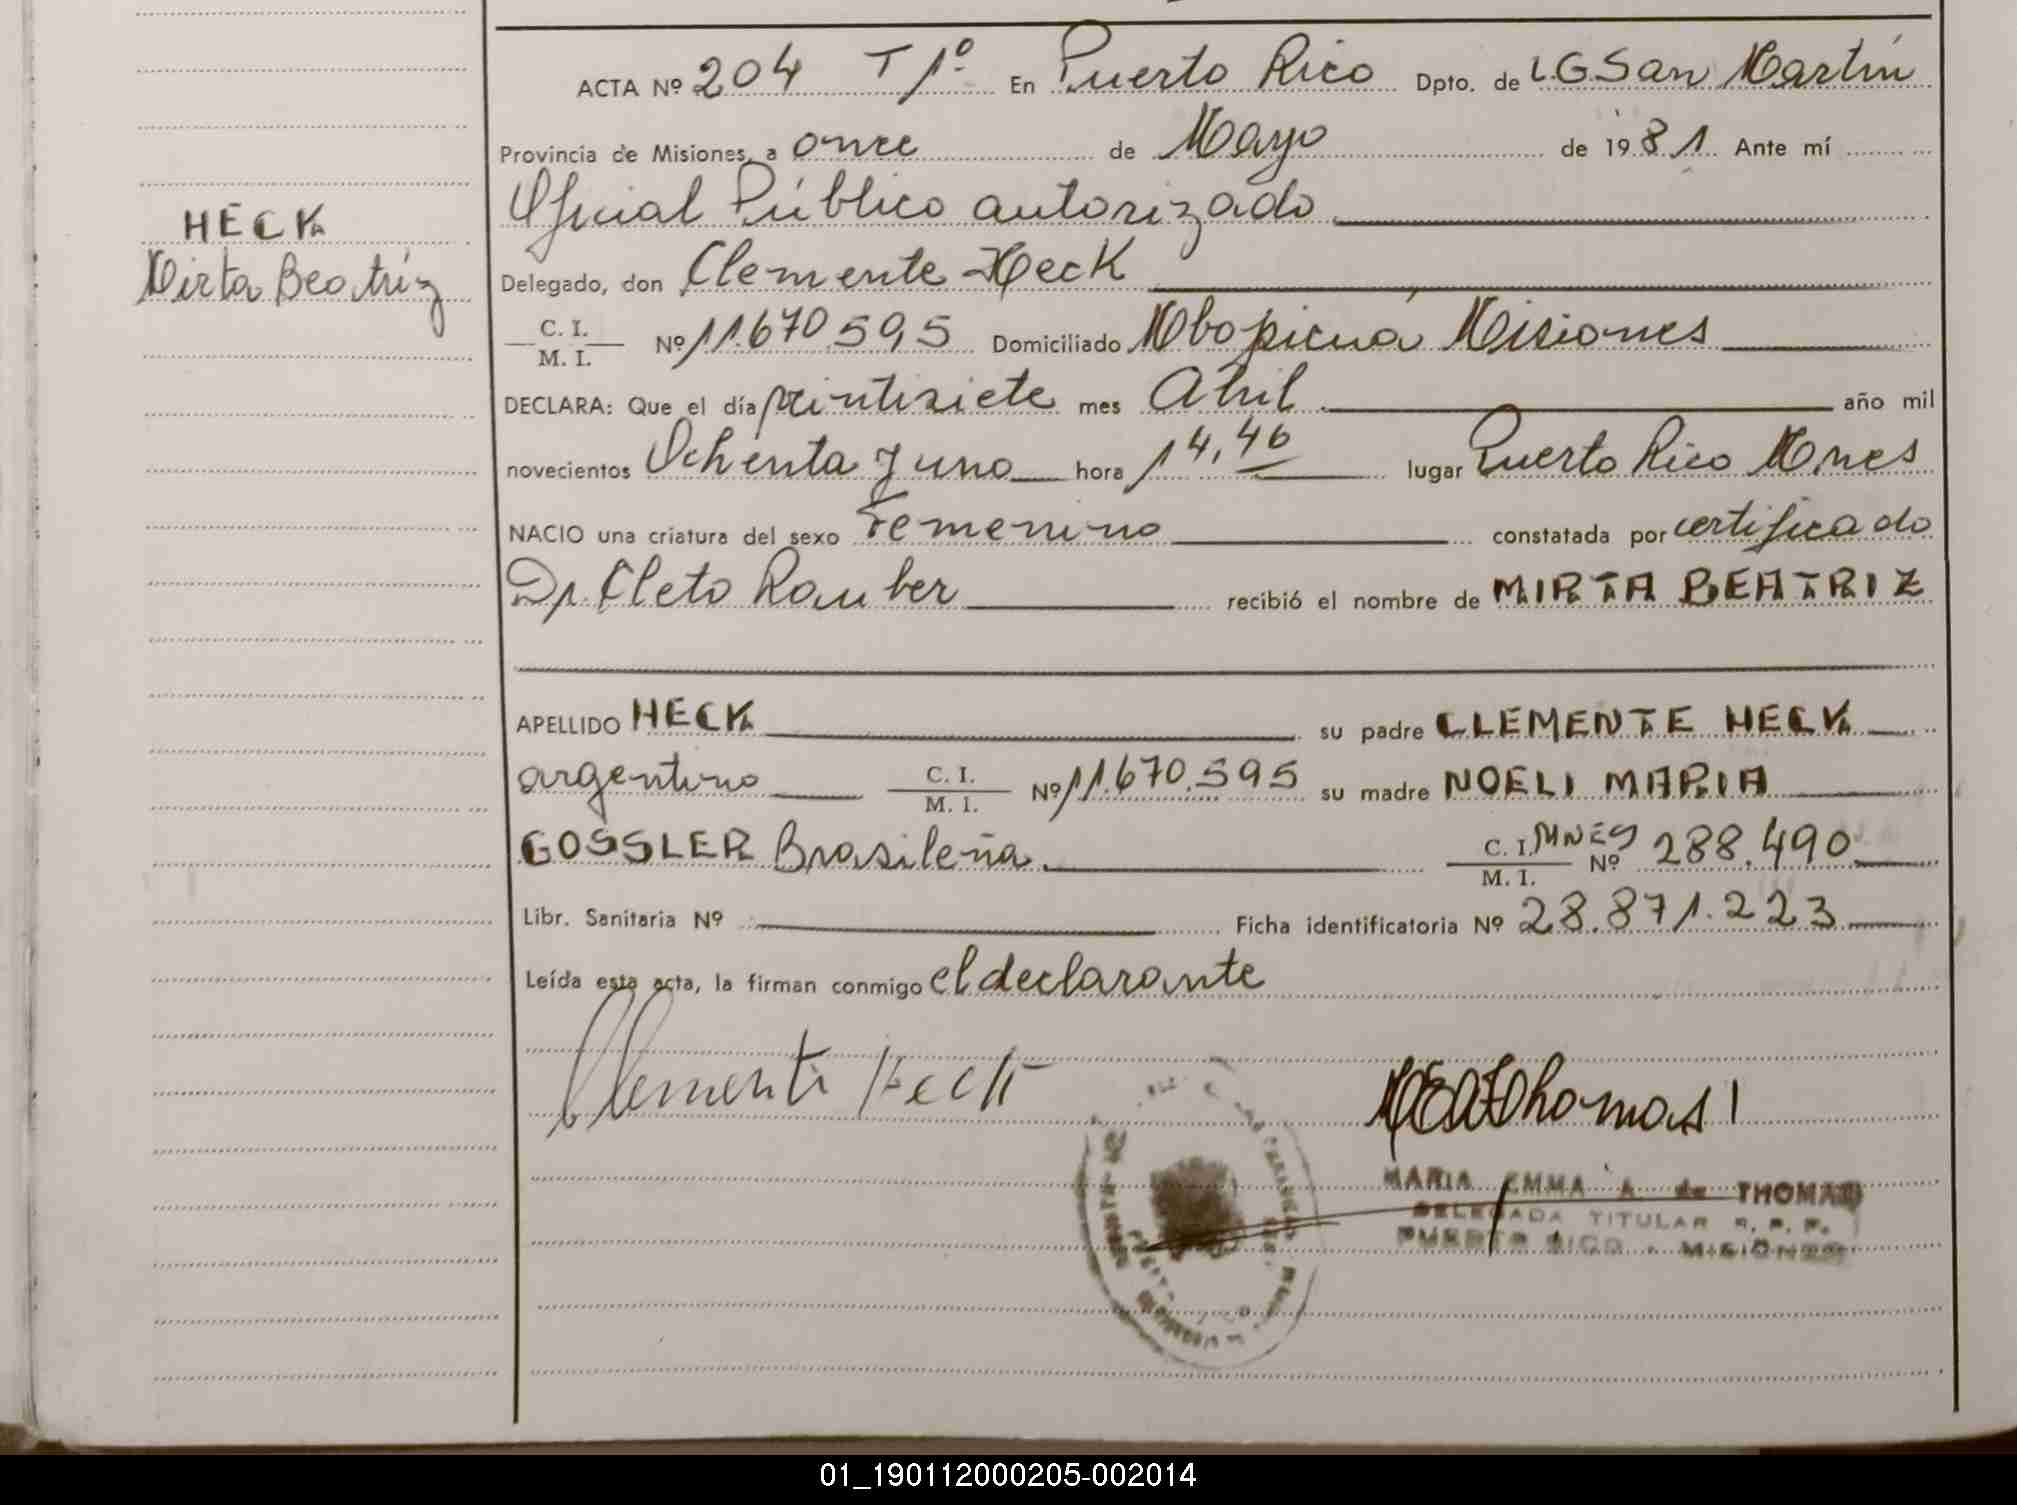 HECK
Mirta Beatríz
ACTA Nº 204 T 1º En Puerto Rico Dpto. de L.G.San Martín
Provincia de Misiones, a once de Mayo de 1981 Ante mí
Oficial Público autorizado
Delegado, don Clemente Heck
C. I.
M. I. Nº 11.670.595 Domiciliado Mbopicuá Misiones
DECLARA: Que el día veintisiete mes Abril año mil
novecientos Ochenta y uno hora 14,46 lugar Puerto Rico Mnes
NACIO una criatura del sexo Femenino constatada por certificado
Dr. Cleto Rauber recibió el nombre de MIRTA BEATRIZ
APELLIDO HECK su padre CLEMENTE HECK
argentino C. I.
M. I. Nº 11.670.595 su madre NOELI MARIA
GOSSLER Brasileña C. I. MNES
M. I. Nº 288.490
Libr. Sanitaria Nº Ficha identificatoria Nº 28.871.223
Leída esta acta, la firman conmigo el declarante
Clemente Heck
Thomas
MARIA EMMA A. de THOMAS
DELEGADA TITULAR R. P. P.
PUERTO RICO - MISIONES
01_190112000205-002014